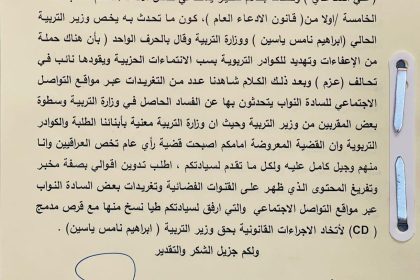 الخامسة /اولا من( قانون الادعاء العام )، كون ما تحدث به يخص وزير التربية
الحالي (ابراهيم نامس ياسين ) ووزارة التربية وقال بالحرف الواحد ( بأن هناك حملة
من الإعفاءات وتهديد للكوادر التربوية بسبب الانتماءات الحزبية ويقودها نائب في
تحالف (عزم ) وبعد ذلك الكلام شاهدنا عدد من التغريدات عبر مواقع التواصل
الاجتماعي للسادة النواب يتحدثون بها عن الفساد الحاصل في وزارة التربية وسطوة
بعض المقربين من وزير التربية وحيث ان وزارة التربية معنية بأبنائنا الطلبة والكوادر
التربوية وان القضية المعروضة امامكم اصبحت قضية رأي عام تخص العراقيين وانا
منهم وجيل كامل عليه ولكل ما تقدم لسيادتكم ، اطلب تدوين اقوالي بصفة مخبر
وتفريغ المحتوى الذي ظهر على القنوات الفضائية وتغريدات بعض السادة النواب
عبر مواقع التواصل الاجتماعي والتي ارفق لسيادتكم طيا نسخ منها مع قرص مدمج
( CD ) لأتخاد الاجراءات القانونية بحق وزير التربية ( ابراهيم نامس ياسين) .
ولكم جزيل الشكر والتقدير